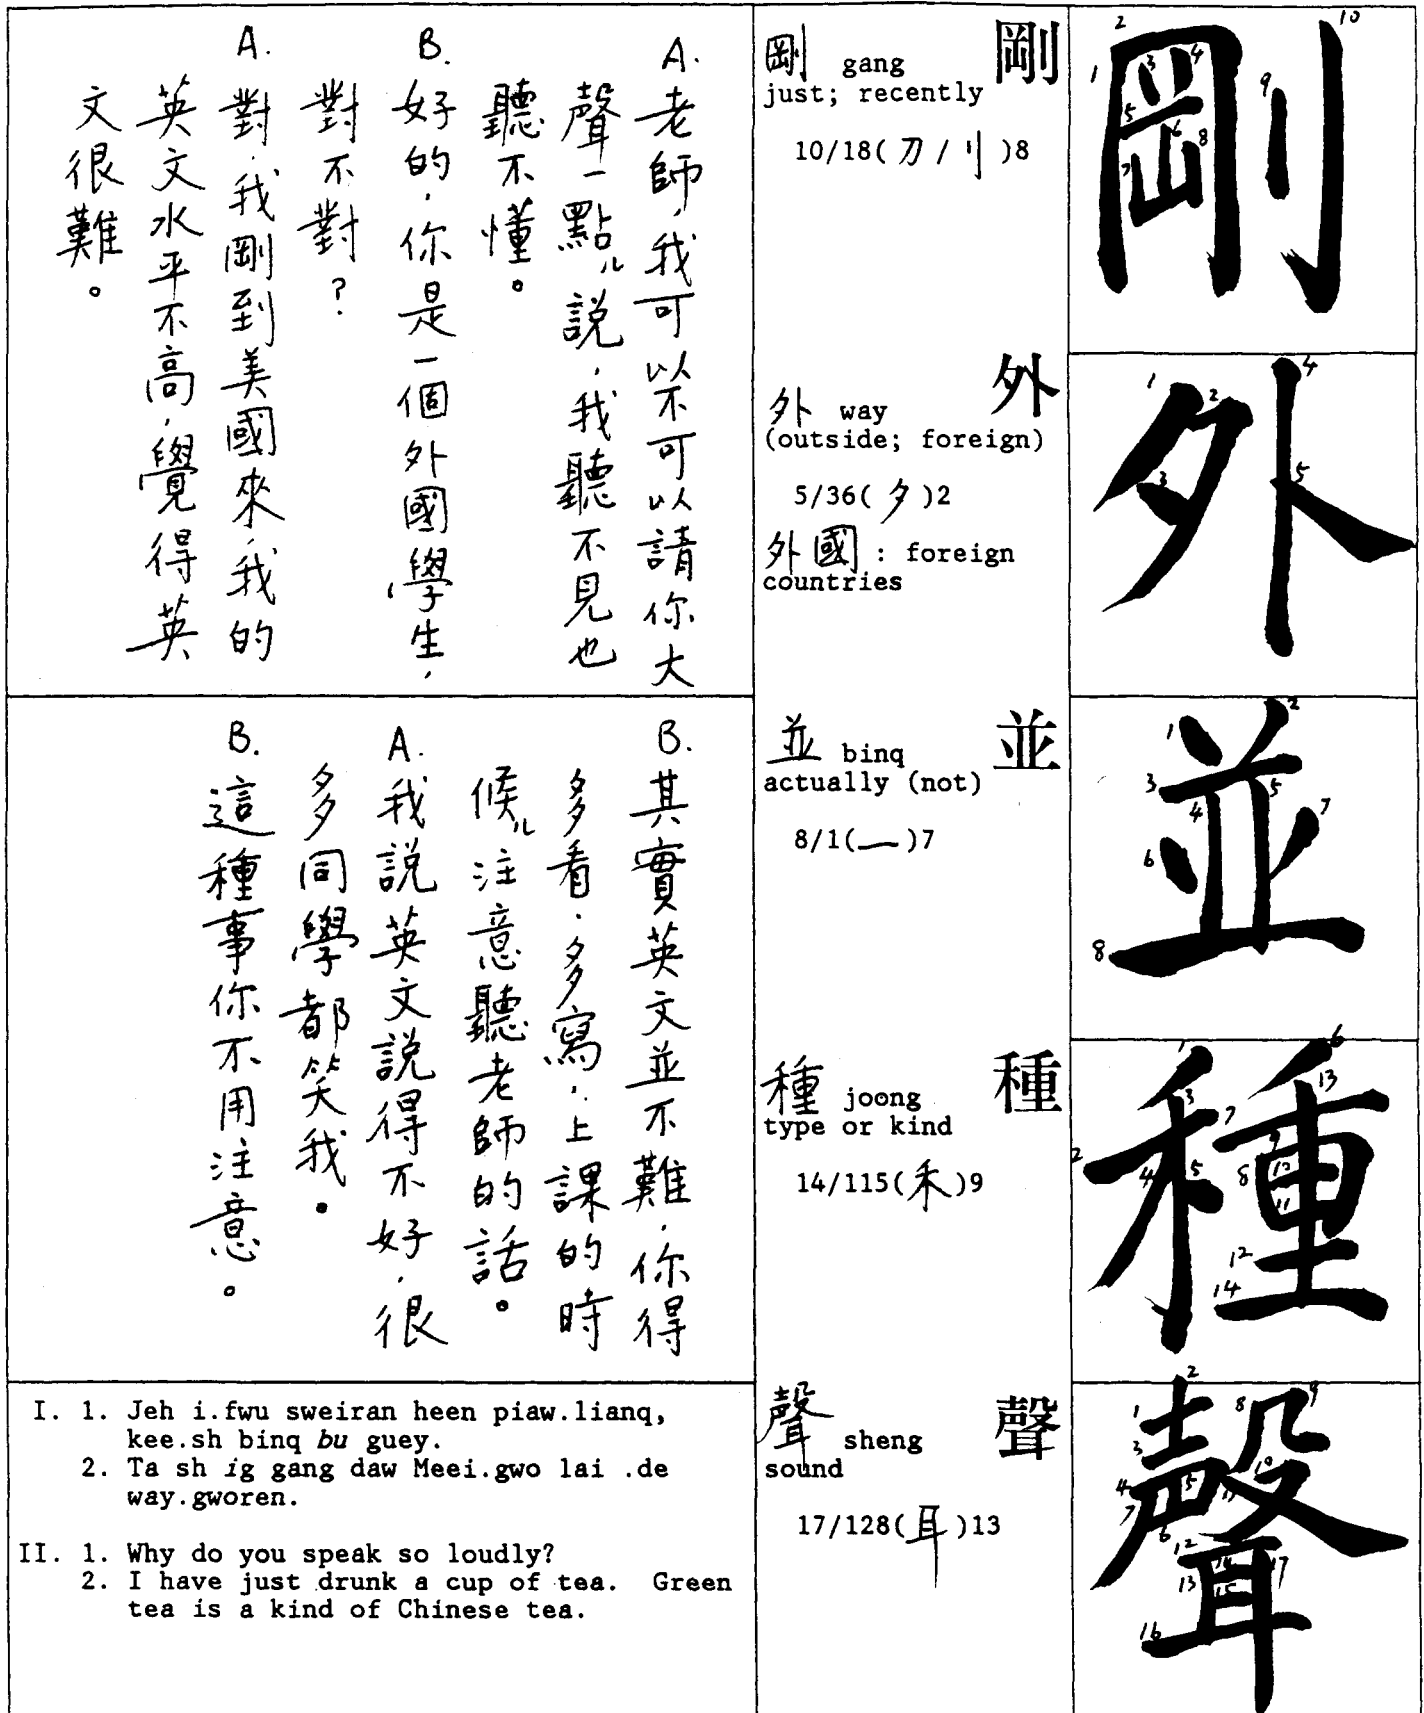 A.
老師,我可以不可以請你大
聲一點儿說,我聽不見也
聽不懂。
B.
好的,你是一個外國學生,
對不對?
A.
對,我剛到美國來,我的
英文水平不高,覺得英
文很難。
B.
其實英文並不難,你得
多看,多寫,上課的時
候儿注意聽老師的話。
A.
我說英文說得不好,很
多同學都笑我。
B.
這種事你不用注意。
I. 1. Jeh i.fwu sweiran heen piaw.lianq,
kee.sh binq bu guey.
2. Ta sh ig gang daw Meei.gwo lai .de
way.gworen.
II. 1. Why do you speak so loudly?
2. I have just drunk a cup of tea. Green
tea is a kind of Chinese tea.
剛 gang 剛
just; recently
10/18(刀/刂)8
外 way 外
(outside; foreign)
5/36(夕)2
外國 : foreign
countries
並 binq 並
actually (not)
8/1(一)7
種 joong 種
type or kind
14/115(禾)9
聲 sheng 聲
sound
17/128(耳)13
剛
1 2 3 4 5 6 7 8 9 10
外
1 2 3 4 5
並
1 2 3 4 5 6 7 8
種
1 2 3 4 5 6 7 8 9 10 11 12 13 14
聲
1 2 3 4 5 6 7 8 9 10 11 12 13 14 15 16 17